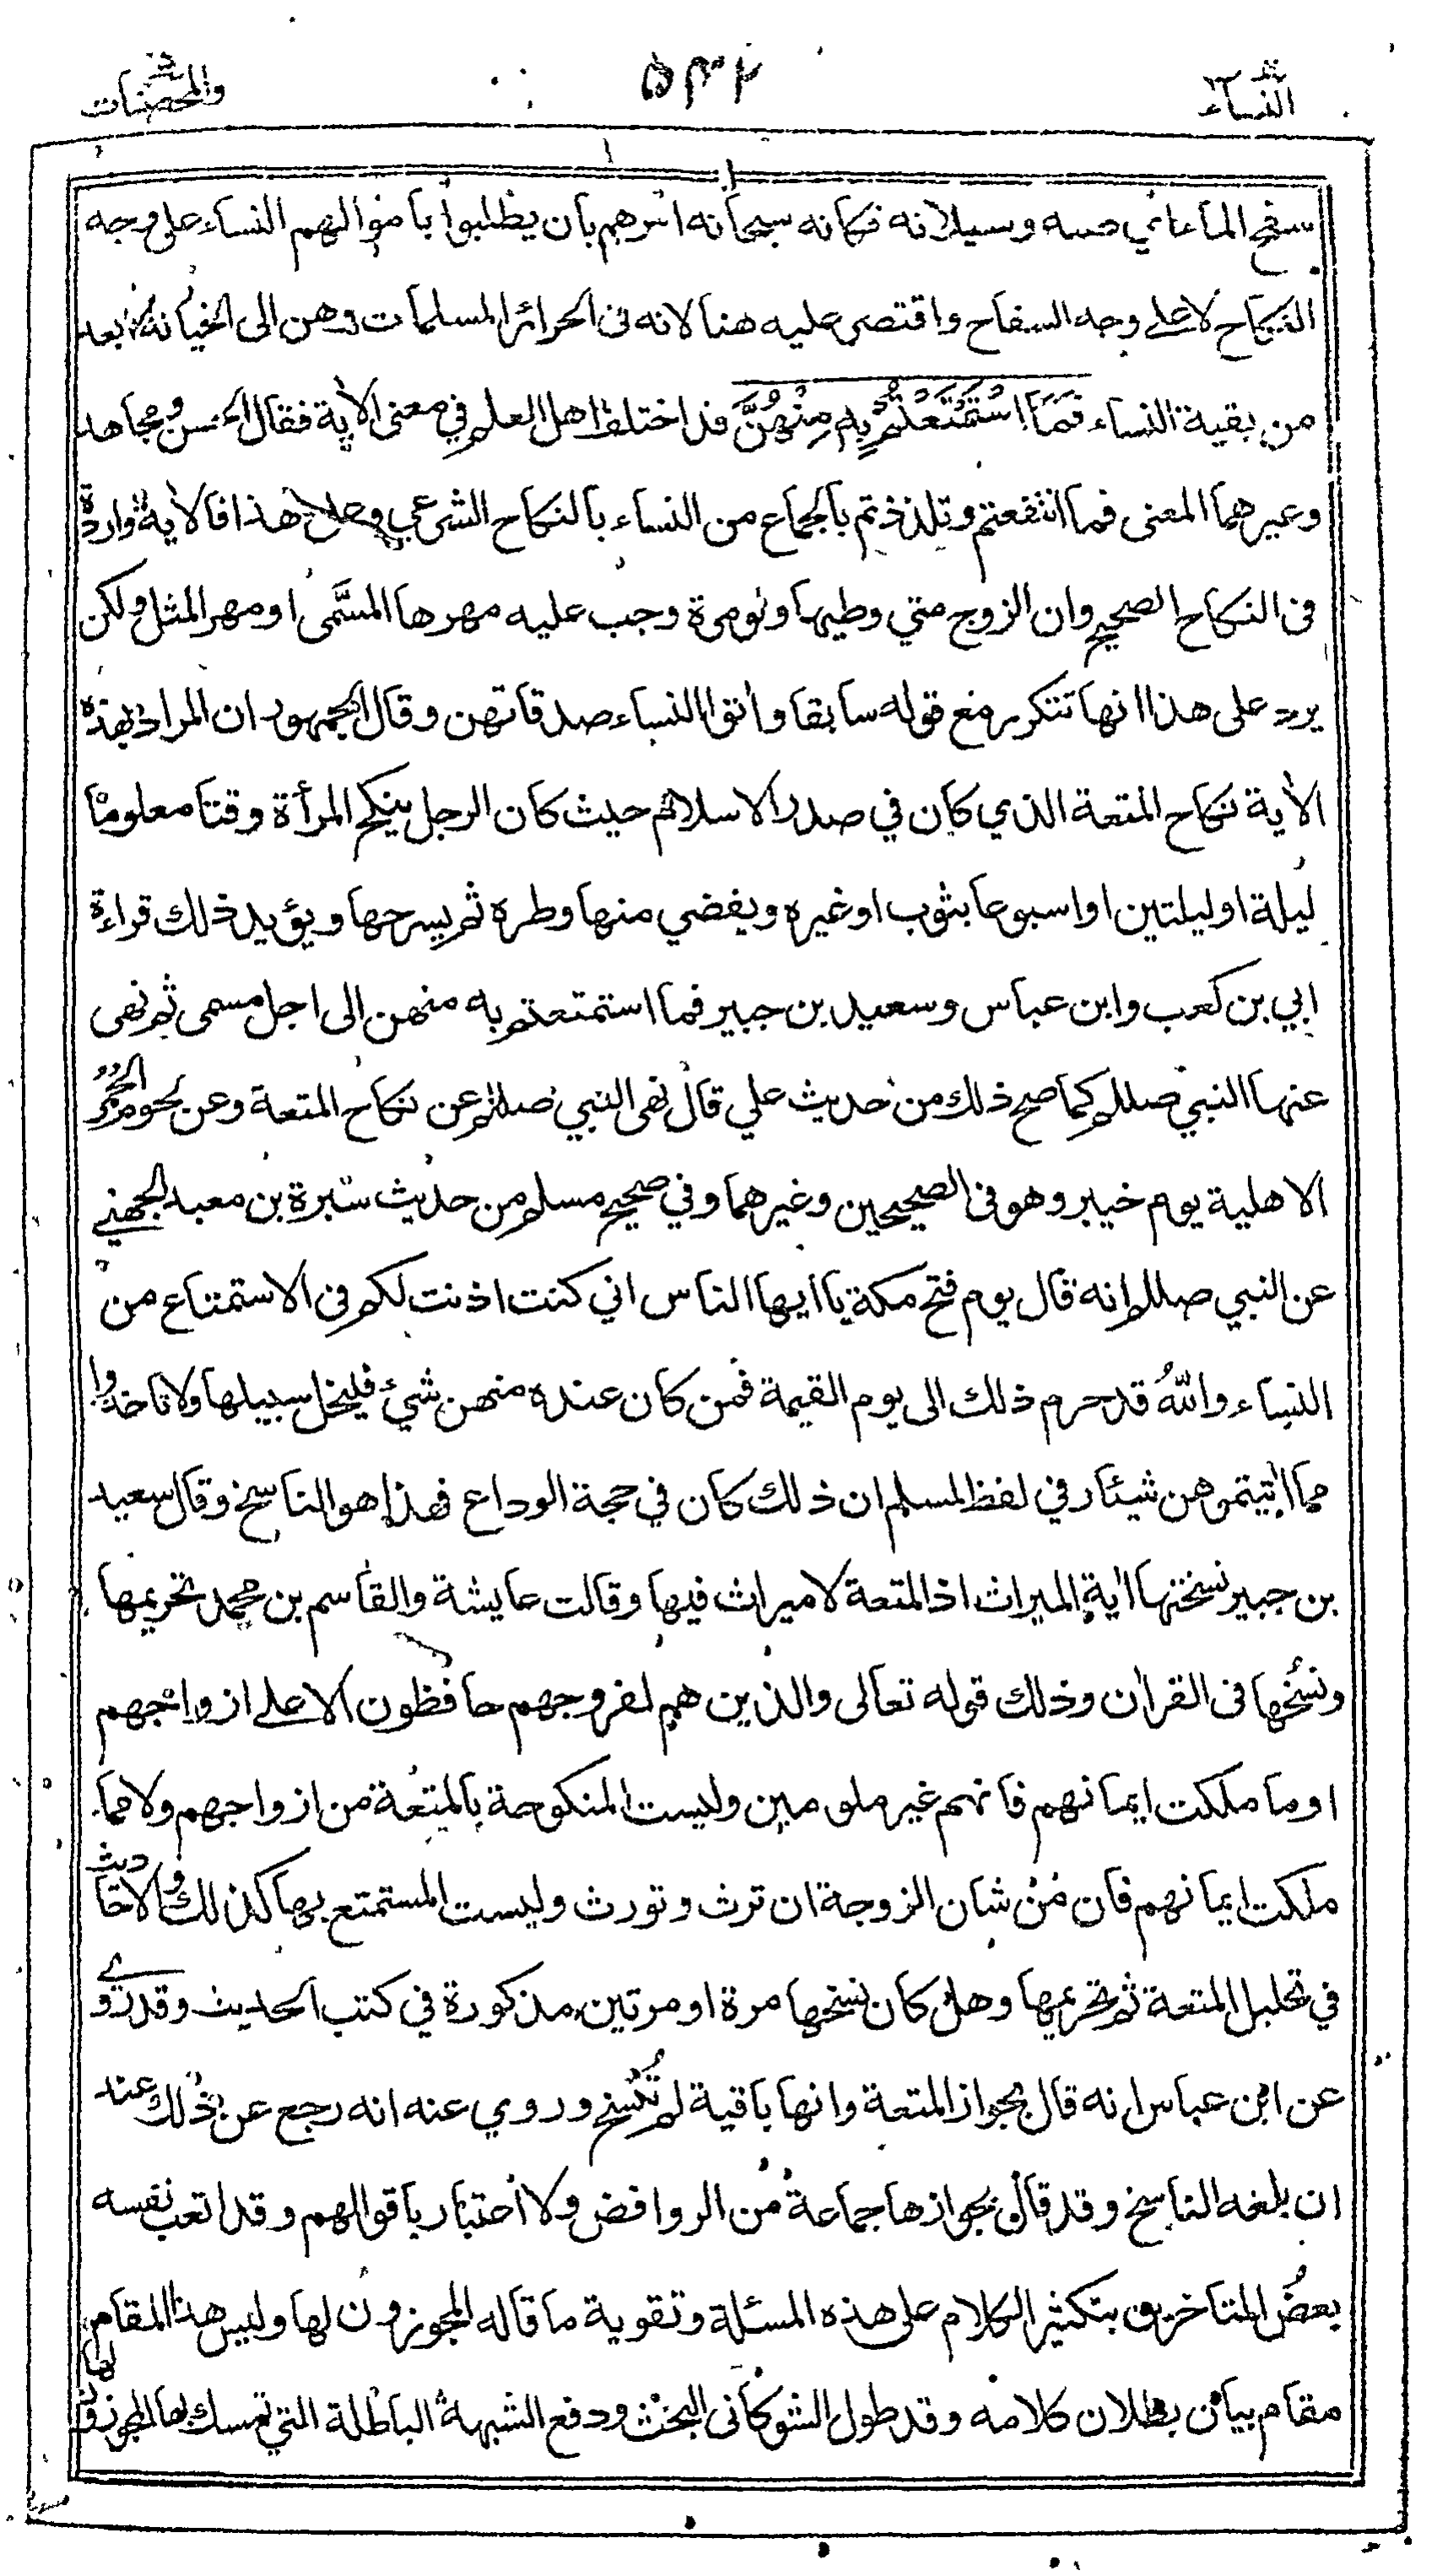 النساء ٥٣٢ والمحصنات
سفح الماء اي صبه وسيلانه فكانه سبحانه امرهم بان يطلبوا باموالهم النساء على وجه
النكاح لا على وجه السفاح واقتصر عليه هنا لانه فى الحرائر المسلمات وهن الى الخيانة ابعد
من بقية النساء فَمَا اسْتَمْتَعْتُمْ بِهِ مِنْهُنَّ قد اختلف اهل العلم في معنى الاية فقال الحسن ومجاهد
وغيرهما المعنى فما انتفعتم وتلذذتم بالجماع من النساء بالنكاح الشرعي وعلى هذا فالاية واردة
فى النكاح الصحيح وان الزوج متى وطيها ولو مرة وجب عليه مهرها المسَّمى او مهر المثل ولكن
يرد على هذا انها تتكرر مع قوله سابقا واتوا النساء صدقاتهن وقال الجمهور ان المراد بهذه
الاية نكاح المتعة الذي كان في صدر الاسلام حيث كان الرجل ينكح المرأة وقتا معلوما
ليلة او ليلتين او اسبوعا بثوب او غيره ويقضي منها وطره ثم يسرحها ويؤيد ذلك قراءة
ابي بن كعب وابن عباس وسعيد بن جبير فما استمتعتم به منهن الى اجل مسمى ثم نهى
عنها النبي صللم كما صح ذلك من حديث علي قال نهى النبي صللم عن نكاح المتعة وعن لحوم الحمر
الاهلية يوم خيبر وهو فى الصحيحين وغيرهما وفي صحيح مسلم من حديث سبرة بن معبد الجهني
عن النبي صللم انه قال يوم فتح مكة يا ايها الناس اني كنت اذنت لكم فى الاستمتاع من
النساء والله قد حرم ذلك الى يوم القيمة فمن كان عنده منهن شيء فليخل سبيلها ولا تاخذوا
مما اتيتموهن شيئا وفي لفظ لمسلم ان ذلك كان في حجة الوداع فهذا هو الناسخ وقال سعيد
بن جبير نسختها اية الميراث اذ المتعة لا ميراث فيها وقالت عايشة والقاسم بن محمد تحريمها
ونسخها فى القران وذلك قوله تعالى والذين هم لفروجهم حافظون الا على ازواجهم
او ما ملكت ايمانهم فانهم غير ملومين وليست المنكوحة بالمتعة من ازواجهم ولا مما
ملكت ايمانهم فان من شان الزوجة ان ترث وتورث وليست المستمتع بها كذلك والاحاديث
في تحليل المتعة ثم تحريمها وهل كان نسخها مرة او مرتين مذكورة في كتب الحديث وقد روي
عن ابن عباس انه قال بجواز المتعة وانها باقية لم تُنسخ وروي عنه انه رجع عن ذلك عند
ان بلغه الناسخ وقد قال بجوازها جماعة من الروافض ولا اعتبار باقوالهم وقد اتعب نفسه
بعض المتاخرين بتكثير الكلام على هذه المسئلة وتقوية ما قاله المجوزون لها وليس هذا المقام
مقام بيان بطلان كلامه وقد طول الشوكانى البحث ودفع الشبهة الباطلة التي تمسك بها المجوزون لها